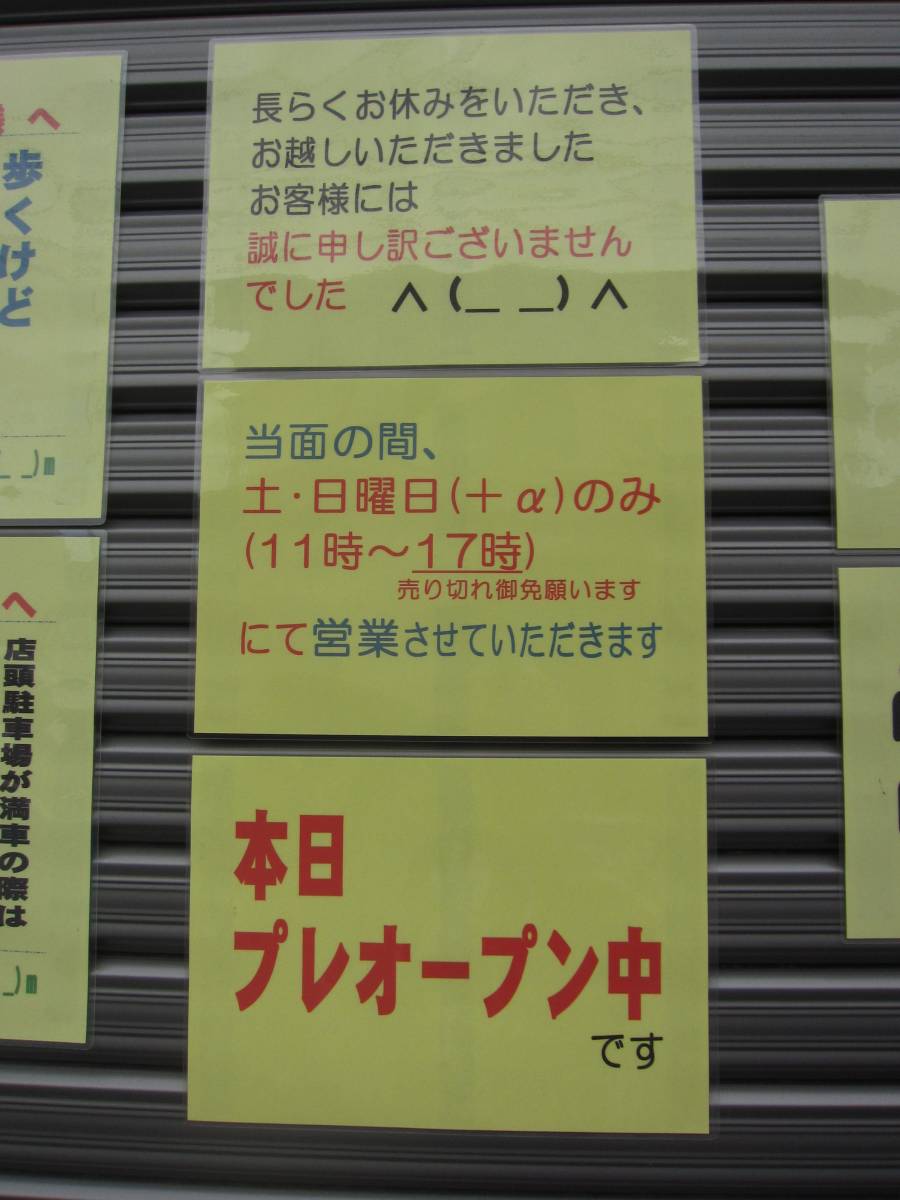 長らくお休みをいただき、
お越しいただきました
お客様には
誠に申し訳ございません
でした ∧(＿ ＿)∧
当面の間、
土・日曜日(＋α)のみ
(11時～17時)
売り切れ御免願います
にて営業させていただきます
本日
プレオープン中
です
様へ
歩くけど
_ _)m
へ
店頭駐車場が満車の際は
_)m